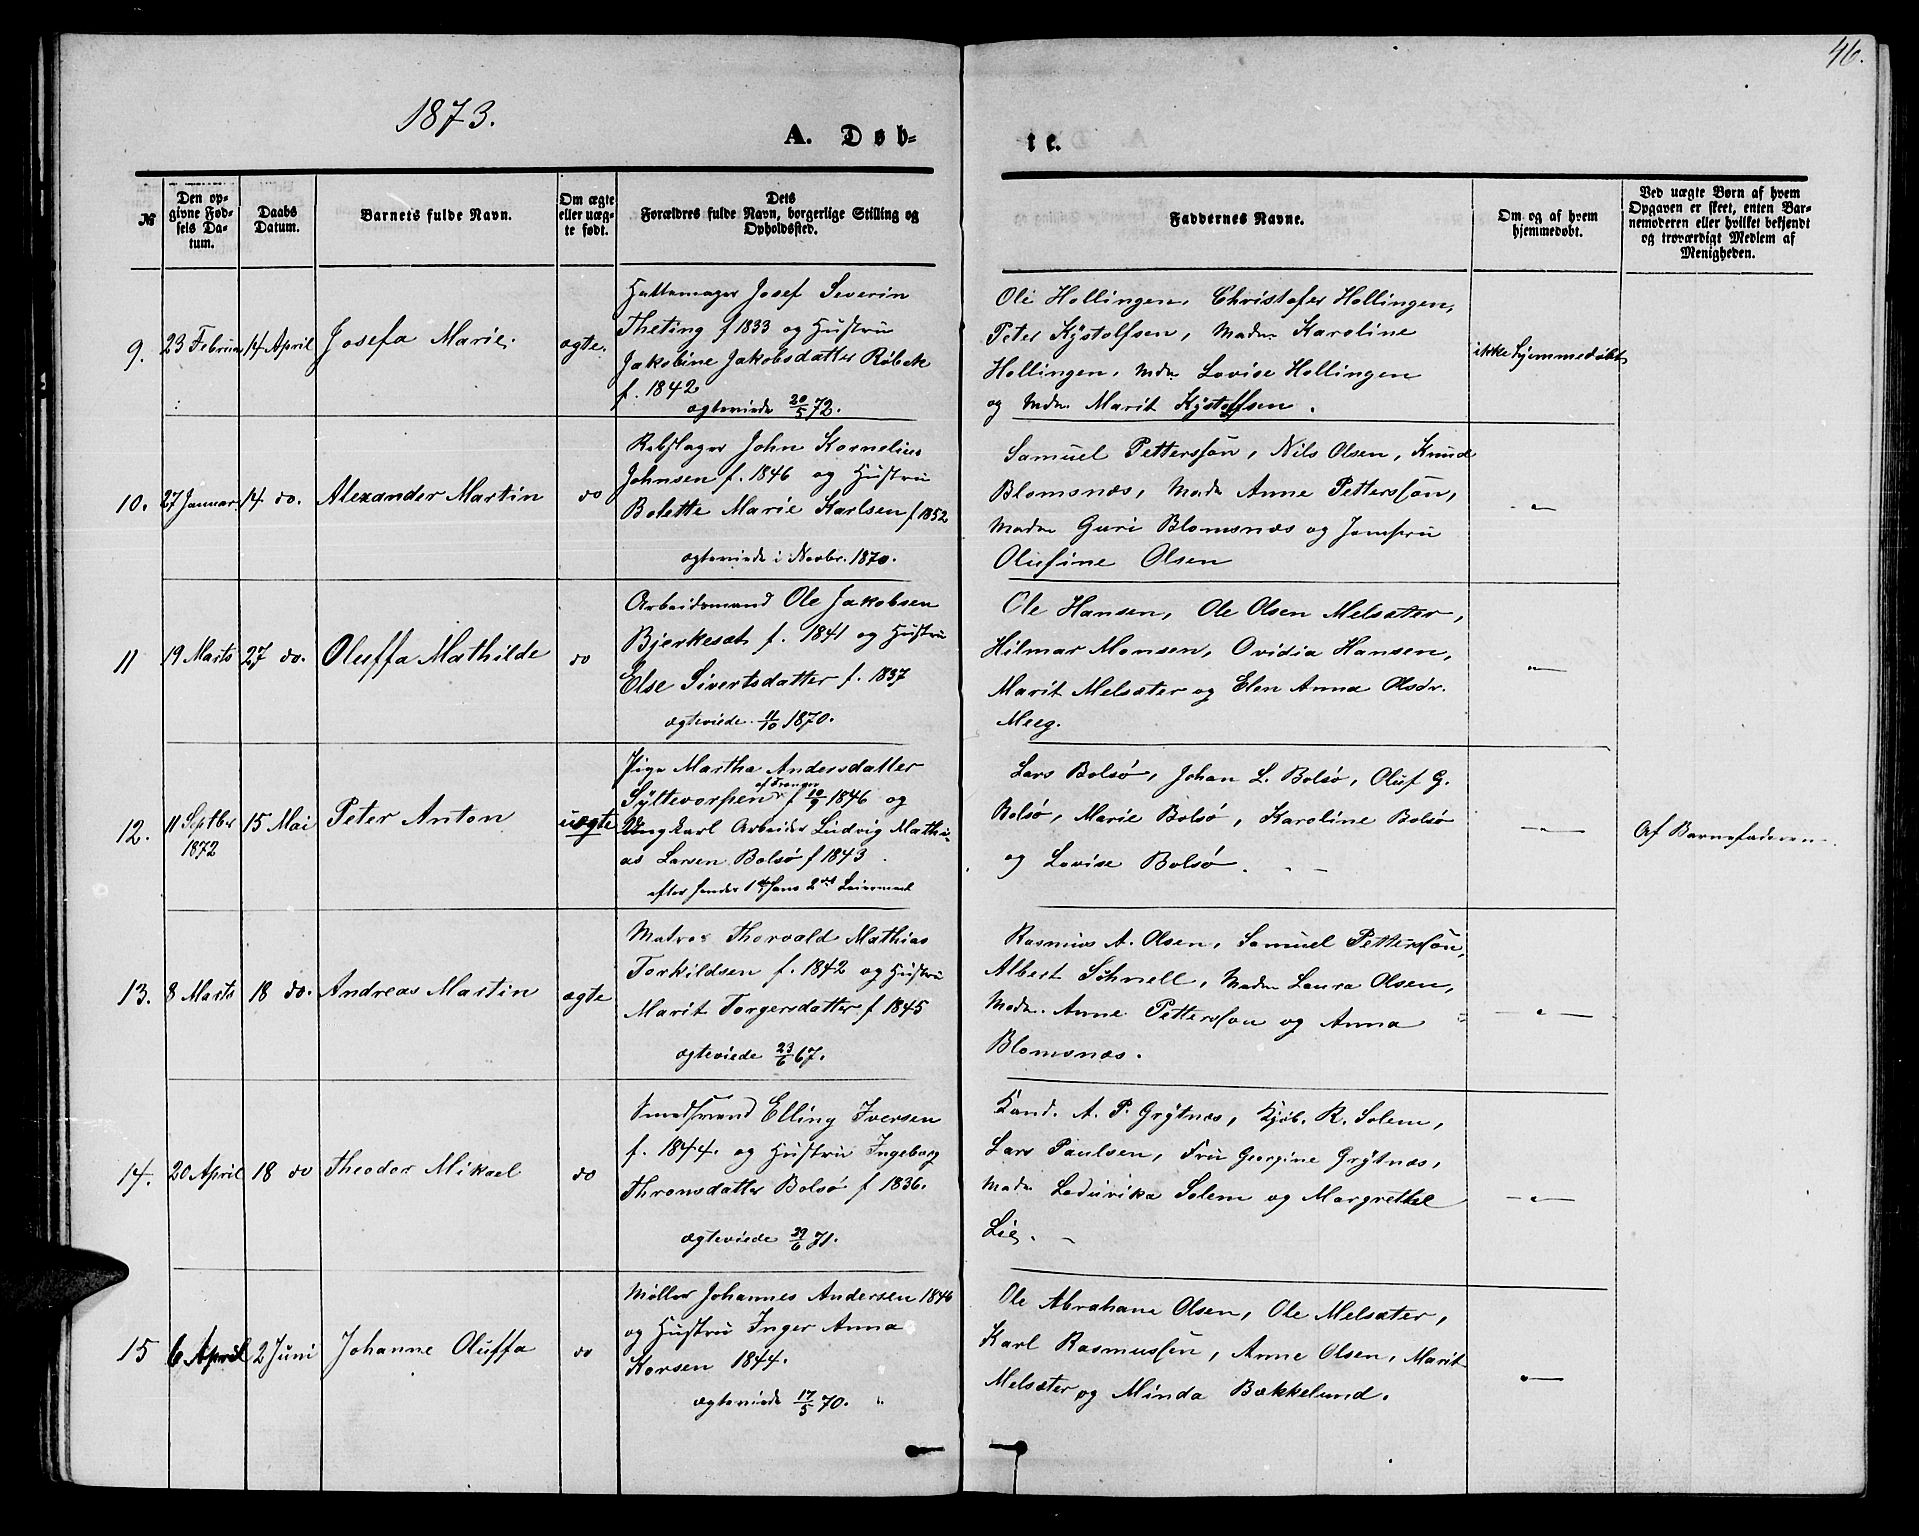 46.
1873.
A. Døb-
te.
№
Den op-
givne Fød-
sels Da-
tum.
Daabs
Datum.
Barnets fulde Navn.
Om ægte
eller uæg-
te født.
Dets
Forældres fulde Navn, borgerlige Stilling og
Opholdssted.
Faddernes Navne.
Om og af hvem
hjemmedøbt.
Ved uægte Børn af hvem
Opgaven er skeet, enten Bar-
nemoderen eller hvilket bekjendt
og troværdigt Medlem af
Menigheden.
9. 23 Februar 14 April Josefa Marie. ægte.
Hattemager Josef Severin
Theting f 1833 og Hustru
Jakobine Jakobsdatter Röbek
f. 1842
ægteviede 20/5 72.
Ole Hollingen, Christofer Hollingen,
Peter Kystolfsen, Madm Karoline
Hollingen, Mdm Lovise Hollingen
og Mdm. Marit Kystolfsen.
ikke hjemmedøbt
10. 27 Januar 14 do. Alexander Martin do
Rebslager John Kornelius
Johnsen f. 1846 og Hustru
Bolette Marie Karlsen f 1852
ægteviede i Novbr. 1870.
Samuel Petterssøn, Nils Olsen, Knud
Blomsnæs, Madm Anne Petterssøn,
Madm Guri Blomsnæs og Jomfru
Olufine Olsen
-"-
11 19 Marts 27 do. Oluffa Mathilde do
Arbeidsmand Ole Jakobsen
Bjerkesæt f. 1841 og Hustru
Else Sivertsdatter f. 1837
ægteviede 11/10 1870.
Ole Hansen, Ole Olsen Melsæter,
Hilmar Monsen, Ovidia Hansen,
Marit Melsæter og Elen Anna Olsdr.
Meeg.
-"-
12. 11 Septber 1872 15 Mai Peter Anton uægte
Pige Martha Andersdatter
Syltevorpen af Frænger f 10/9 1846 og
Ungkarl Arbeider Ludvig Mathi-
as Larsen Bolsø f 1843
efter hendes 1ste hans 2det Leiermaal
Lars Bolsø, Johan L. Bolsø, Oluf G.
Bolsø, Marie Bolsø, Karoline Bolsø
og Lovise Bolsø.
-"-
Af Barnefaderen.
13. 8 Marts 18 do. Andreas Martin ægte
Matros Thorvald Mathias
Torkildsen f. 1842 og Hustru
Marit Torgersdatter f 1845
ægteviede 23/6 67.
Rasmus A. Olsen, Samuel Petterssøn,
Albert Schnell, Madm Laura Olsen,
Madm. Anne Petterssøn og Anna
Blomsnæs.
-"-
14. 20 April 18 do Theodor Mikael do
Smedsvend Elling Iversen
f. 1844. og Hustru Ingeborg
Thronsdatter Bolsø f 1836.
ægteviede 29/6 71.
Kand. A. P. Grytnæs, Kjøb. R. Solem,
Lars Paulsen, Fru Georgine Grytnæs,
Madm Ledvika Solem og Margrethe
Lie.
-"-
15 6 April 2 Juni Johanne Oluffa do
Møller Johannes Andersen 1846
og Hustru Inger Anna
Korsen 1844.
ægteviede 17/5 70.
Ole Abrahane Olsen, Ole Melsæter,
Karl Rasmussen, Anne Olsen, Marit
Melsæter og Minda Bækkelund.
-"-